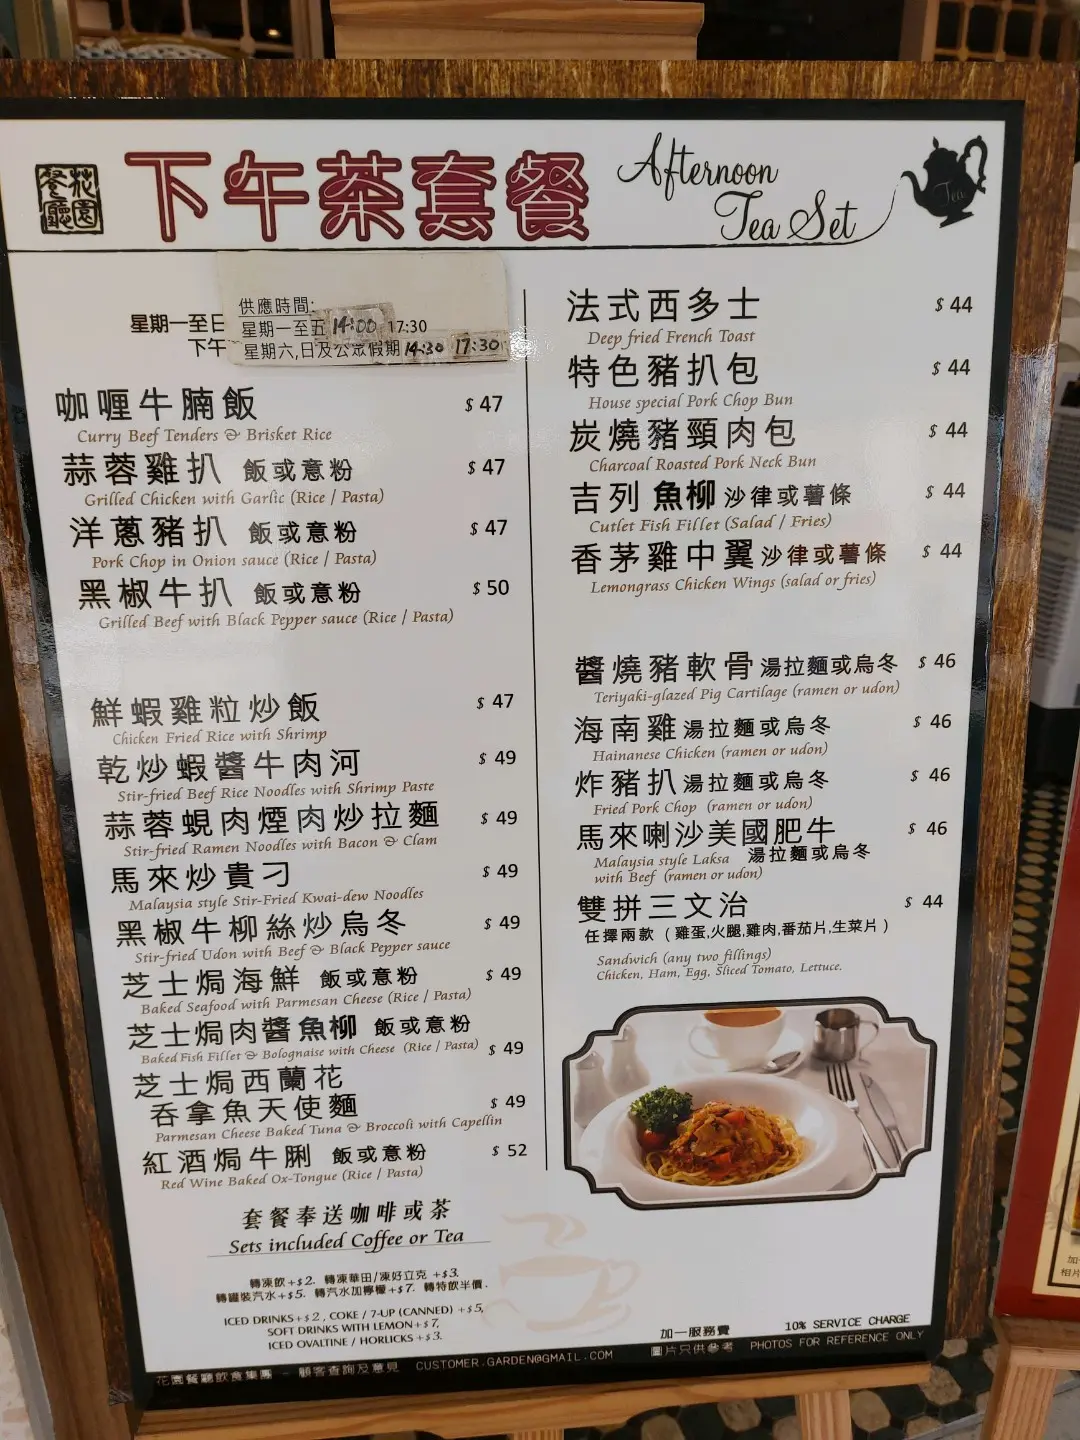 花園餐廳
下午茶套餐
Afternoon
Tea Set
Tea
供應時間:
星期一至日
星期一至五 14:00 17:30
下午
星期六,日及公眾假期 14:30 17:30
咖喱牛腩飯 $ 47
Curry Beef Tenders & Brisket Rice
蒜蓉雞扒 飯或意粉 $ 47
Grilled Chicken with Garlic (Rice / Pasta)
洋蔥豬扒 飯或意粉 $ 47
Pork Chop in Onion sauce (Rice / Pasta)
黑椒牛扒 飯或意粉 $ 50
Grilled Beef with Black Pepper sauce (Rice / Pasta)
鮮蝦雞粒炒飯 $ 47
Chicken Fried Rice with Shrimp
乾炒蝦醬牛肉河 $ 49
Stir-fried Beef Rice Noodles with Shrimp Paste
蒜蓉蜆肉煙肉炒拉麵 $ 49
Stir-fried Ramen Noodles with Bacon & Clam
馬來炒貴刁 $ 49
Malaysia style Stir-Fried Kwai-dew Noodles
黑椒牛柳絲炒烏冬 $ 49
Stir-fried Udon with Beef & Black Pepper sauce
芝士焗海鮮 飯或意粉 $ 49
Baked Seafood with Parmesan Cheese (Rice / Pasta)
芝士焗肉醬魚柳 飯或意粉
Baked Fish Fillet & Bolognaise with Cheese (Rice / Pasta) $ 49
芝士焗西蘭花
吞拿魚天使麵 $ 49
Parmesan Cheese Baked Tuna & Broccoli with Capellin
紅酒焗牛脷 飯或意粉 $ 52
Red Wine Baked Ox-Tongue (Rice / Pasta)
套餐奉送咖啡或茶
Sets included Coffee or Tea
轉凍飲+$2. 轉凍華田/凍好立克 +$3.
轉罐裝汽水+$5. 轉汽水加檸檬+$7. 轉特飲半價.
ICED DRINKS+$2, COKE / 7-UP (CANNED) +$5,
SOFT DRINKS WITH LEMON+$7,
ICED OVALTINE / HORLICKS +$3.
法式西多士 $ 44
Deep fried French Toast
特色豬扒包 $ 44
House special Pork Chop Bun
炭燒豬頸肉包 $ 44
Charcoal Roasted Pork Neck Bun
吉列魚柳 沙律或薯條 $ 44
Cutlet Fish Fillet (Salad / Fries)
香茅雞中翼 沙律或薯條 $ 44
Lemongrass Chicken Wings (salad or fries)
醬燒豬軟骨 湯拉麵或烏冬 $ 46
Teriyaki-glazed Pig Cartilage (ramen or udon)
海南雞 湯拉麵或烏冬 $ 46
Hainanese Chicken (ramen or udon)
炸豬扒 湯拉麵或烏冬 $ 46
Fried Pork Chop (ramen or udon)
馬來喇沙美國肥牛 $ 46
Malaysia style Laksa 湯拉麵或烏冬
with Beef (ramen or udon)
雙拼三文治 $ 44
任擇兩款 (雞蛋,火腿,雞肉,番茄片,生菜片)
Sandwich (any two fillings)
Chicken, Ham, Egg, Sliced Tomato, Lettuce.
加一服務費 10% SERVICE CHARGE
圖片只供參考 PHOTOS FOR REFERENCE ONLY
花園餐廳飲食集團 - 顧客查詢及意見 CUSTOMER.GARDEN@GMAIL.COM